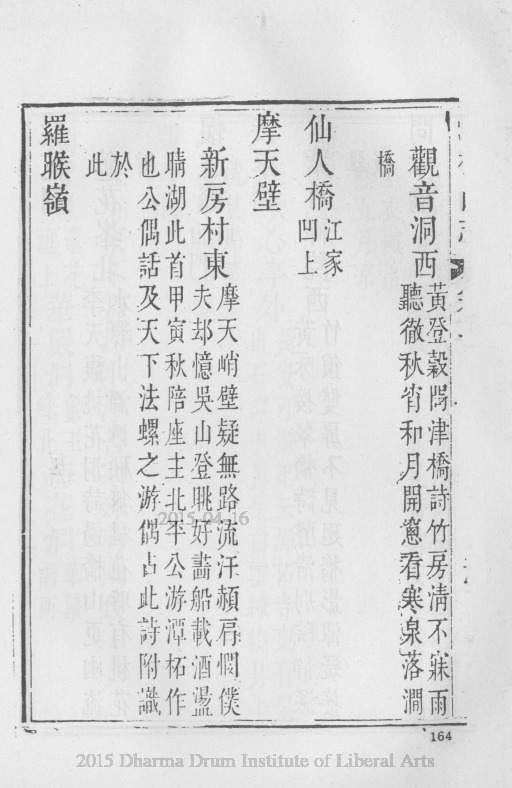 觀音洞西 黃登穀閟津橋詩竹房淸不寐雨
聽徹秋宵和月開窻看寒泉落澗
橋
仙人橋 江家
凹上
摩天壁
新房村東 摩天峭壁疑無路流汗頳肩憫僕
夫却憶吳山登眺好畵船載酒盪
晴湖此首甲寅秋陪座主北平公游潭柘作
也公偶話及天下法螺之游偶占此詩附識
於
此
羅睺嶺
164
2015-04-16
2015 Dharma Drum Institute of Liberal Arts